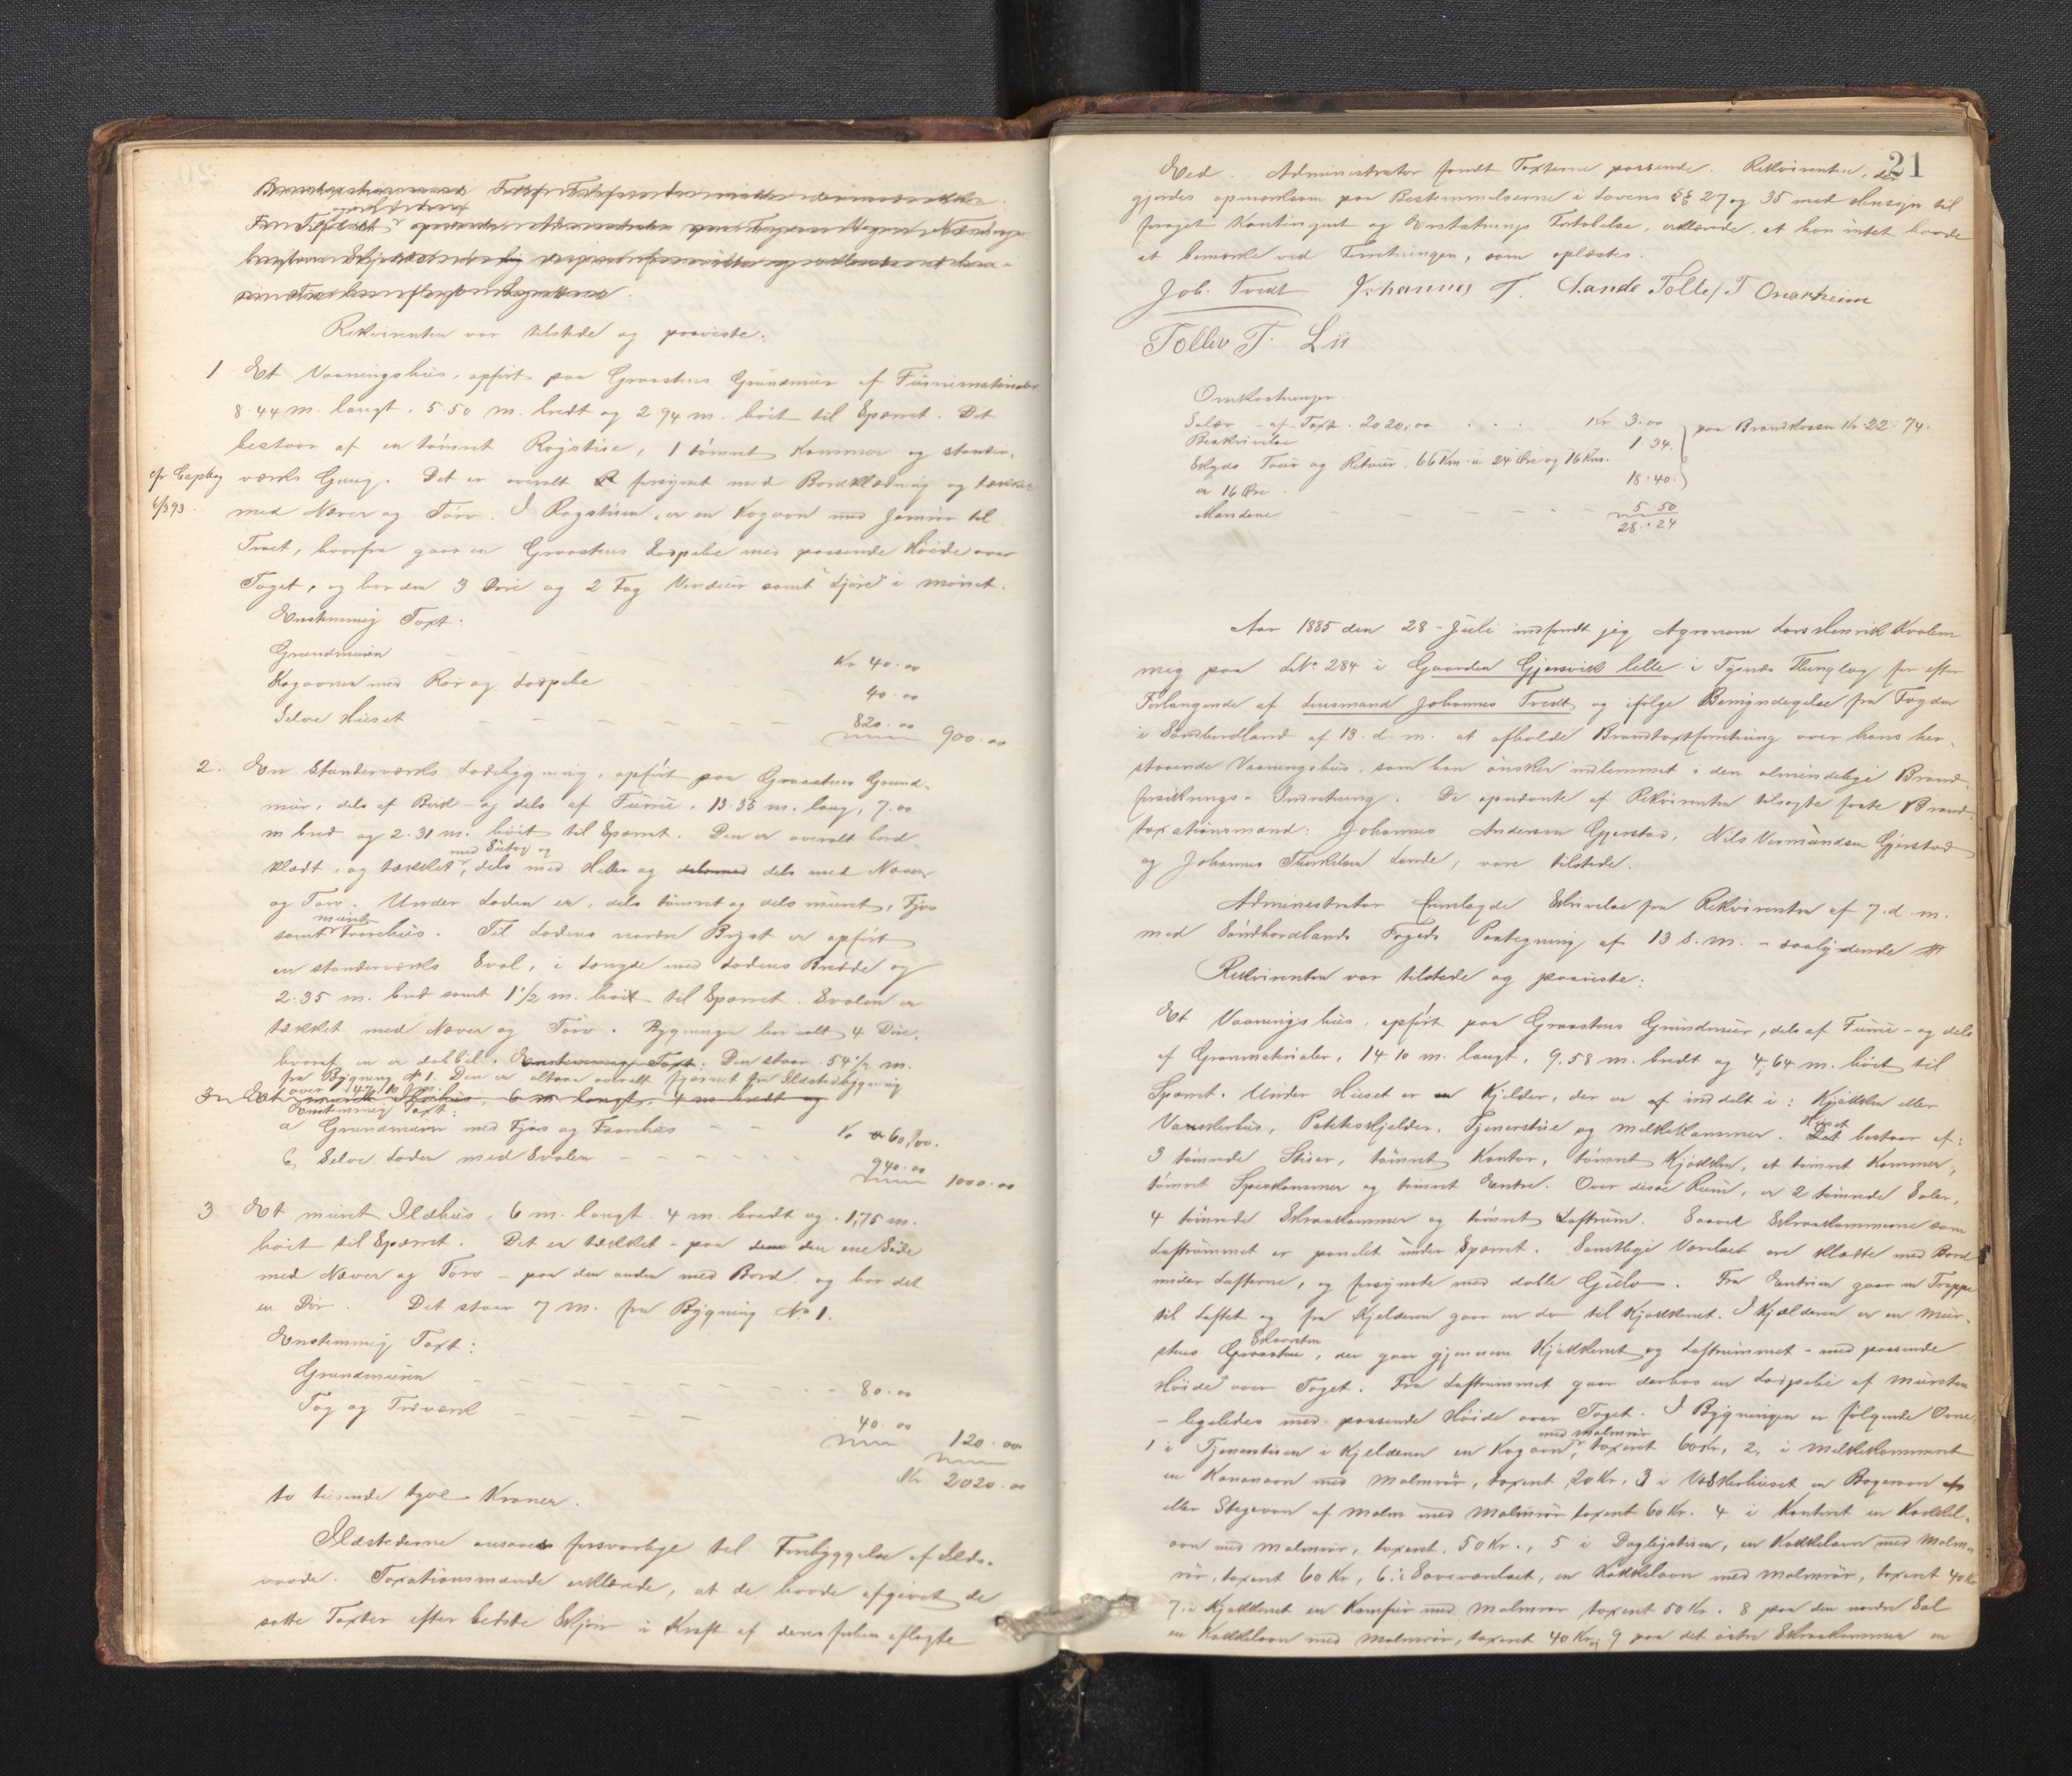 Rekvirenten var tilstede og paaviste:
1 Et Vaaningshus, opført paa Graastens Grundmur af Furumaterialer
8.44 m. langt, 5.50 m. bredt og 2.94 m. høit til Sparret. Det
bestaar af en tømret Røgstue, 1 tømret Kammer og stander-
cfr Captbog værks Gang. Det er overalt forsynet med Bordklædning og tækket
6/3 93. med Næver og Torv. I Røgstuen er en Kogovn med Jernrør til
Træet, hvorfra gaar en Graastens Lodpibe med passende Høide over
Taget, og har den 3 Døre og 2 Fag Vinduer samt "Ljore" i Mønet.
Enstemmig Taxt:
Grundmuren Kr 40.00
Kogovnen med Rør og Lodpibe 40.00
Selve Huset 820.00 900.00
2. En Standerværks Ladebygning, opført paa Graastens Grund-
mur, dels af Birk- og dels af Furu, 13.35 m. lang, 7.00
m bred og 2.31 m. høit til Sparret. Den er overalt bord-
klædt, og tækket, dels med Heller og delsmed dels med Næver
med Sutag og
og Torv. Under Laden er, dels tømret og dels muret, Fjøs
samt muret Faarehus. Til Ladens nordre Bryst er opført
en standerværks Sval, i Længde med Ladens Bredde og
2.35 m. bred samt 1 1/2 m. høit til Sparret. Svalen er
tækket med Næver og Torv. Bygningen har ialt 4 Døre,
hvoraf en er dobbel. Enstemmig Taxt: Den staar 54 1/2 m.
fra Bygning No 1. Den er altsaa overalt fjernet fra Ildstedsbygning
over
3. Et muret Ildhus, 6 m langt, 4 m bredt og
Enstemmig Taxt:
a Grundmuren med Fjøs og Faarehus Kr 60.00.
b, Selve Laden med Svalen 940.00 1000.00
3 Et muret Ildhus, 6 m. langt 4 m. bredt og 1,75 m.
høit til Sparret. Det er tækket - paa den ene Side
med Næver og Torv - paa den anden med Bord, og har det
en Dør. Det staar 7 m. fra Bygning No 1.
Enstemmig Taxt:
Grundmuren 80.00
Tag og Træværk 40.00 120.00
Kr 2020.00
to tusende tyve Kroner.
Ildstederne ansaaes forsvarlige til Forebyggelse af Ilds-
vaade. Taxationsmænde erklærede, at de havde afgivet de
satte Taxter efter bedste Skjøn i Kraft af deres forhen aflagte
21
Eed. Administrator fandt Taxterne passende. Rekvirenten, der
gjordes opmærksom paa Bestemmelserne i Lovens §§ 27 og 35 med Hensyn til
forøget Kontingent og Erstatnings Fortabelse, erklærede, at han intet havde
at bemærke ved Forretningen, som oplæstes.
Joh. Tvedt Johannes T. Lande Tollef T Onarheim
Tollev T. Lie
Omkostninger.
Salær af Taxt 2020.00 Kr 3.00 paa Brandkassen Kr 22.74.
Beskrivelse 1.34.
Skyds Tour og Retour, 66 Km. a 24 Øre og 16 Km.
a 16 Øre 18.40.
Mændene 5.50
28.24
Aar 1885 den 28 - Juli indfandt jeg Agronom Lars Henrik Kvalem
mig paa L.No 284 i Gaarden Gjersvik lille i Tysnes Thinglag for efter
Forlangende af Lensmand Johannes Tvedt og ifølge Bemyndigelse fra Fogden
i Søndhordland af 13. d. m. at afholde Brandtaxtforretning over hans her-
staaende Vaaningshus, som han ønsker indlemmet i den almindelige Brand-
forsikrings- Indretning. De opnævnte af Rekvirenten tilsagte faste Brand-
taxationsmænd: Johannes Andersen Gjerstad, Nils Vermundsen Gjerstad
og Johannes Thorkelsen Lande, vare tilstede.
Administrator fremlagde Skrivelse fra Rekvirenten af 7. d. m.
med Søndhordlands Fogeds Paategning af 13 s. m. - saalydende
Rekvirenten var tilstede og paaviste:
Et Vaaningshus, opført paa Graastens Grundmur, dels af Furu- og dels
af Granmaterialer, 14.10 m. langt, 9.58 m. bredt og 4.64 m. høit til
Sparret. Under Huset er en Kjelder, der er inddelt i: Kjøkken eller
Vaskerhus, Potetkjelder, Tjenerstue og Melkekammer. Huset bestaar af:
3 tømrede Stuer, tømret Kontor, tømret Kjøkken, et tømret Kammer,
tømret Spiskammer og tømret Entre. Over disse Rum, er 2 tømrede Saler,
4 tømrede Skraakammer og tømret Loftrum. Saavel Skraakammerne som
Loftrummet er panelet under Sparret. Samtlige Værelser ere klædte med Bord
under Lofterne, og forsynede med doble Gulv. Fra Entrien gaar en Trappe
til Loftet og fra Kjelderen gaar en do til Kjøkkenet. I Kjælderen er en Mur-
stens Skorsten, der gaar gjennem Kjøkkenet og Loftrummet - med passende
Høide over Taget. Fra Loftrummet gaar derhos en Lodpibe af Mursten
- ligeledes med passende Høide over Taget. I Bygningen er følgende Ovne
1 i Tjenerstuen i Kjelderen en Kogovn med Malmrør, taxeret 60 Kr, 2, i Melkekammeret
en Kanonovn med Malmrør, taxeret 20 Kr. 3 i Vaskerhuset en Bagerovn
eller Stegeovn af Malm med Malmrør taxeret 60 Kr. 4 i Kontoret en Kakkel-
ovn med Malmrør, taxeret. 50 Kr., 5 i Dagligstuen, en Kakkelovn med Malm-
rør, taxeret 60 Kr, 6 i Soveværelset, en Kakkelovn med Malmrør, taxeret 40 Kr
7. i Kjøkkenet en Komfur med Malmrør taxeret 50 Kr. 8 paa den nordre Sal
en Kakkelovn med Malmrør, taxeret 40 Kr, 9 paa det østre Skraakammer en